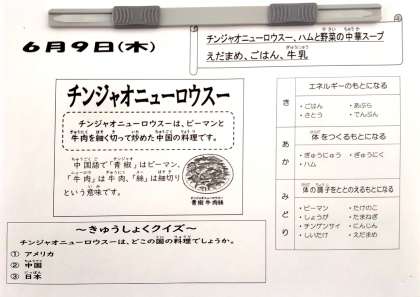 6月9日(木)
チンジャオニューロウスー、ハムと野菜の中華スープ
えだまめ、ごはん、牛乳
チンジャオニューロウスー
チンジャオニューロウスーは、ピーマンと
牛肉を細く切って炒めた中国の料理です。
中国語で「青椒」はピーマン、
「牛肉」は牛肉、「絲」は細切り
という意味です。
青椒牛肉絲
～きゅうしょくクイズ～
チンジャオニューロウスーは、どこの国の料理でしょうか。
① アメリカ
② 中国
③ 日本
き
エネルギーのもとになる
・ごはん ・あぶら
・さとう ・でんぷん
あか
体をつくるもとになる
・ぎゅうにゅう ・ぎゅうにく
・ハム
みどり
体の調子をととのえるもとになる
・ピーマン ・たけのこ
・しょうが ・たまねぎ
・チンゲンサイ ・にんじん
・しいたけ ・えだまめ